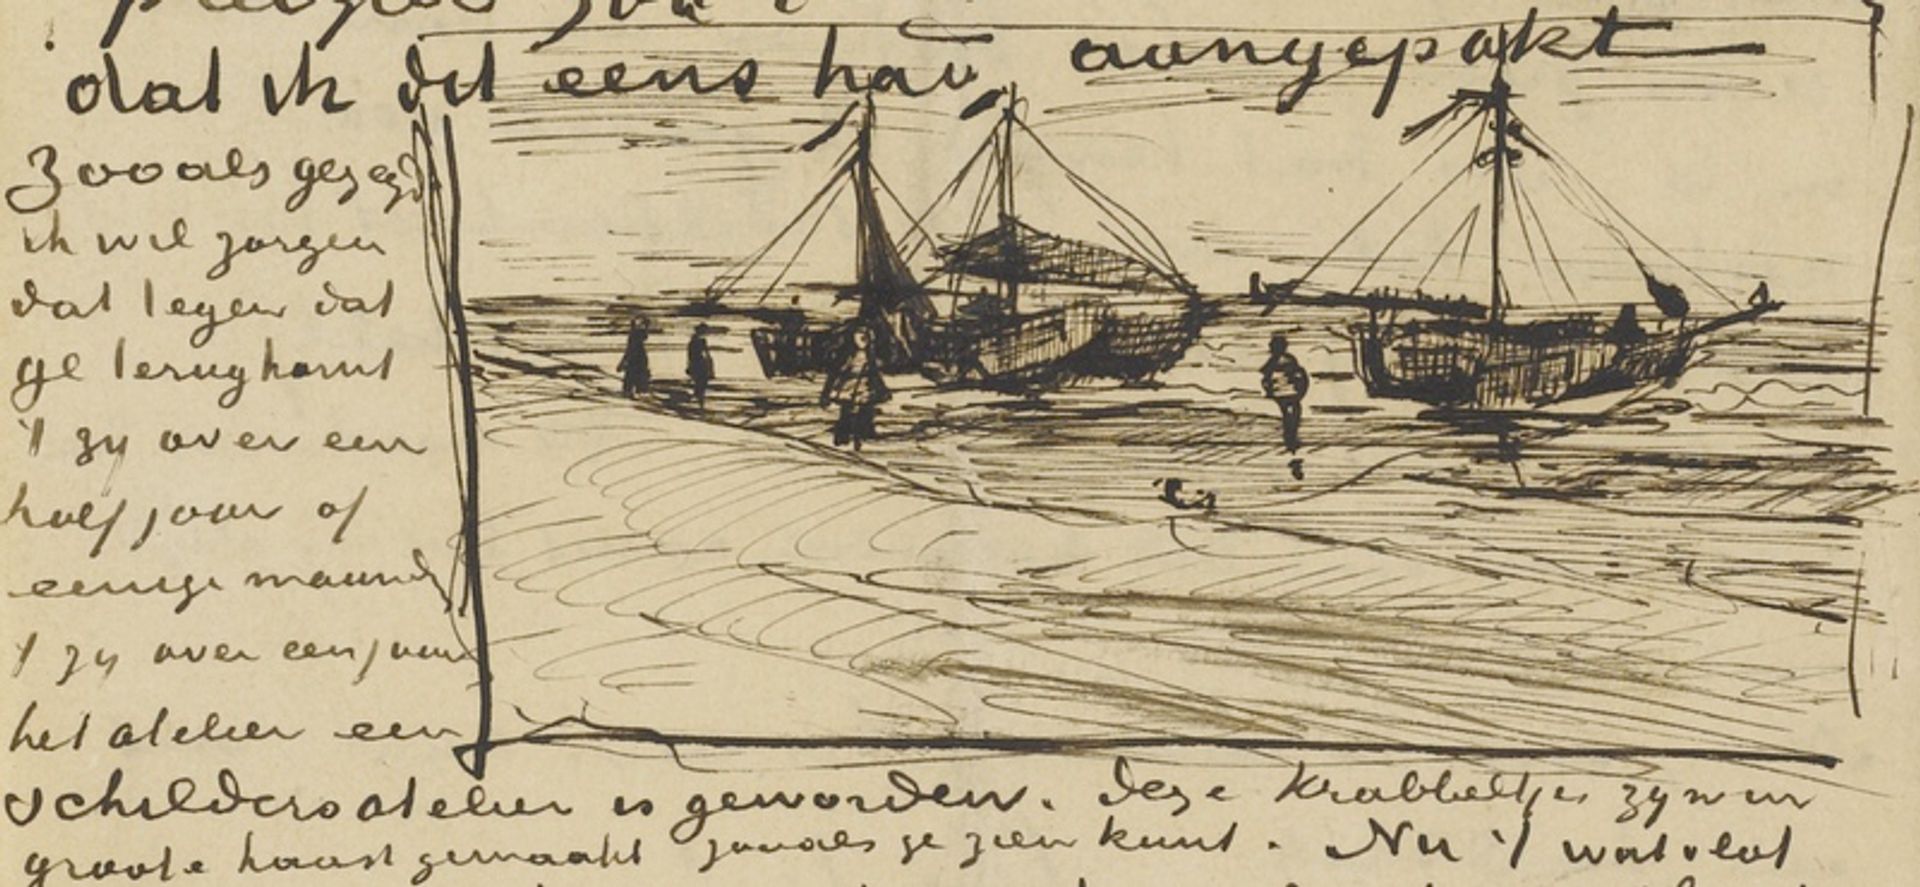 dat ik dit eens had aangepakt
Zooals gezegd
ik wil zorgen
dat tegen dat
ge terugkomt
't zy over een
half jaar of
eenige maanden
't zy over een jaar
het atelier een
schildersatelier is geworden. Deze krabbeltjes zyn in
groote haast gemaakt zooals ge zien kunt. Nu 't wat vlot